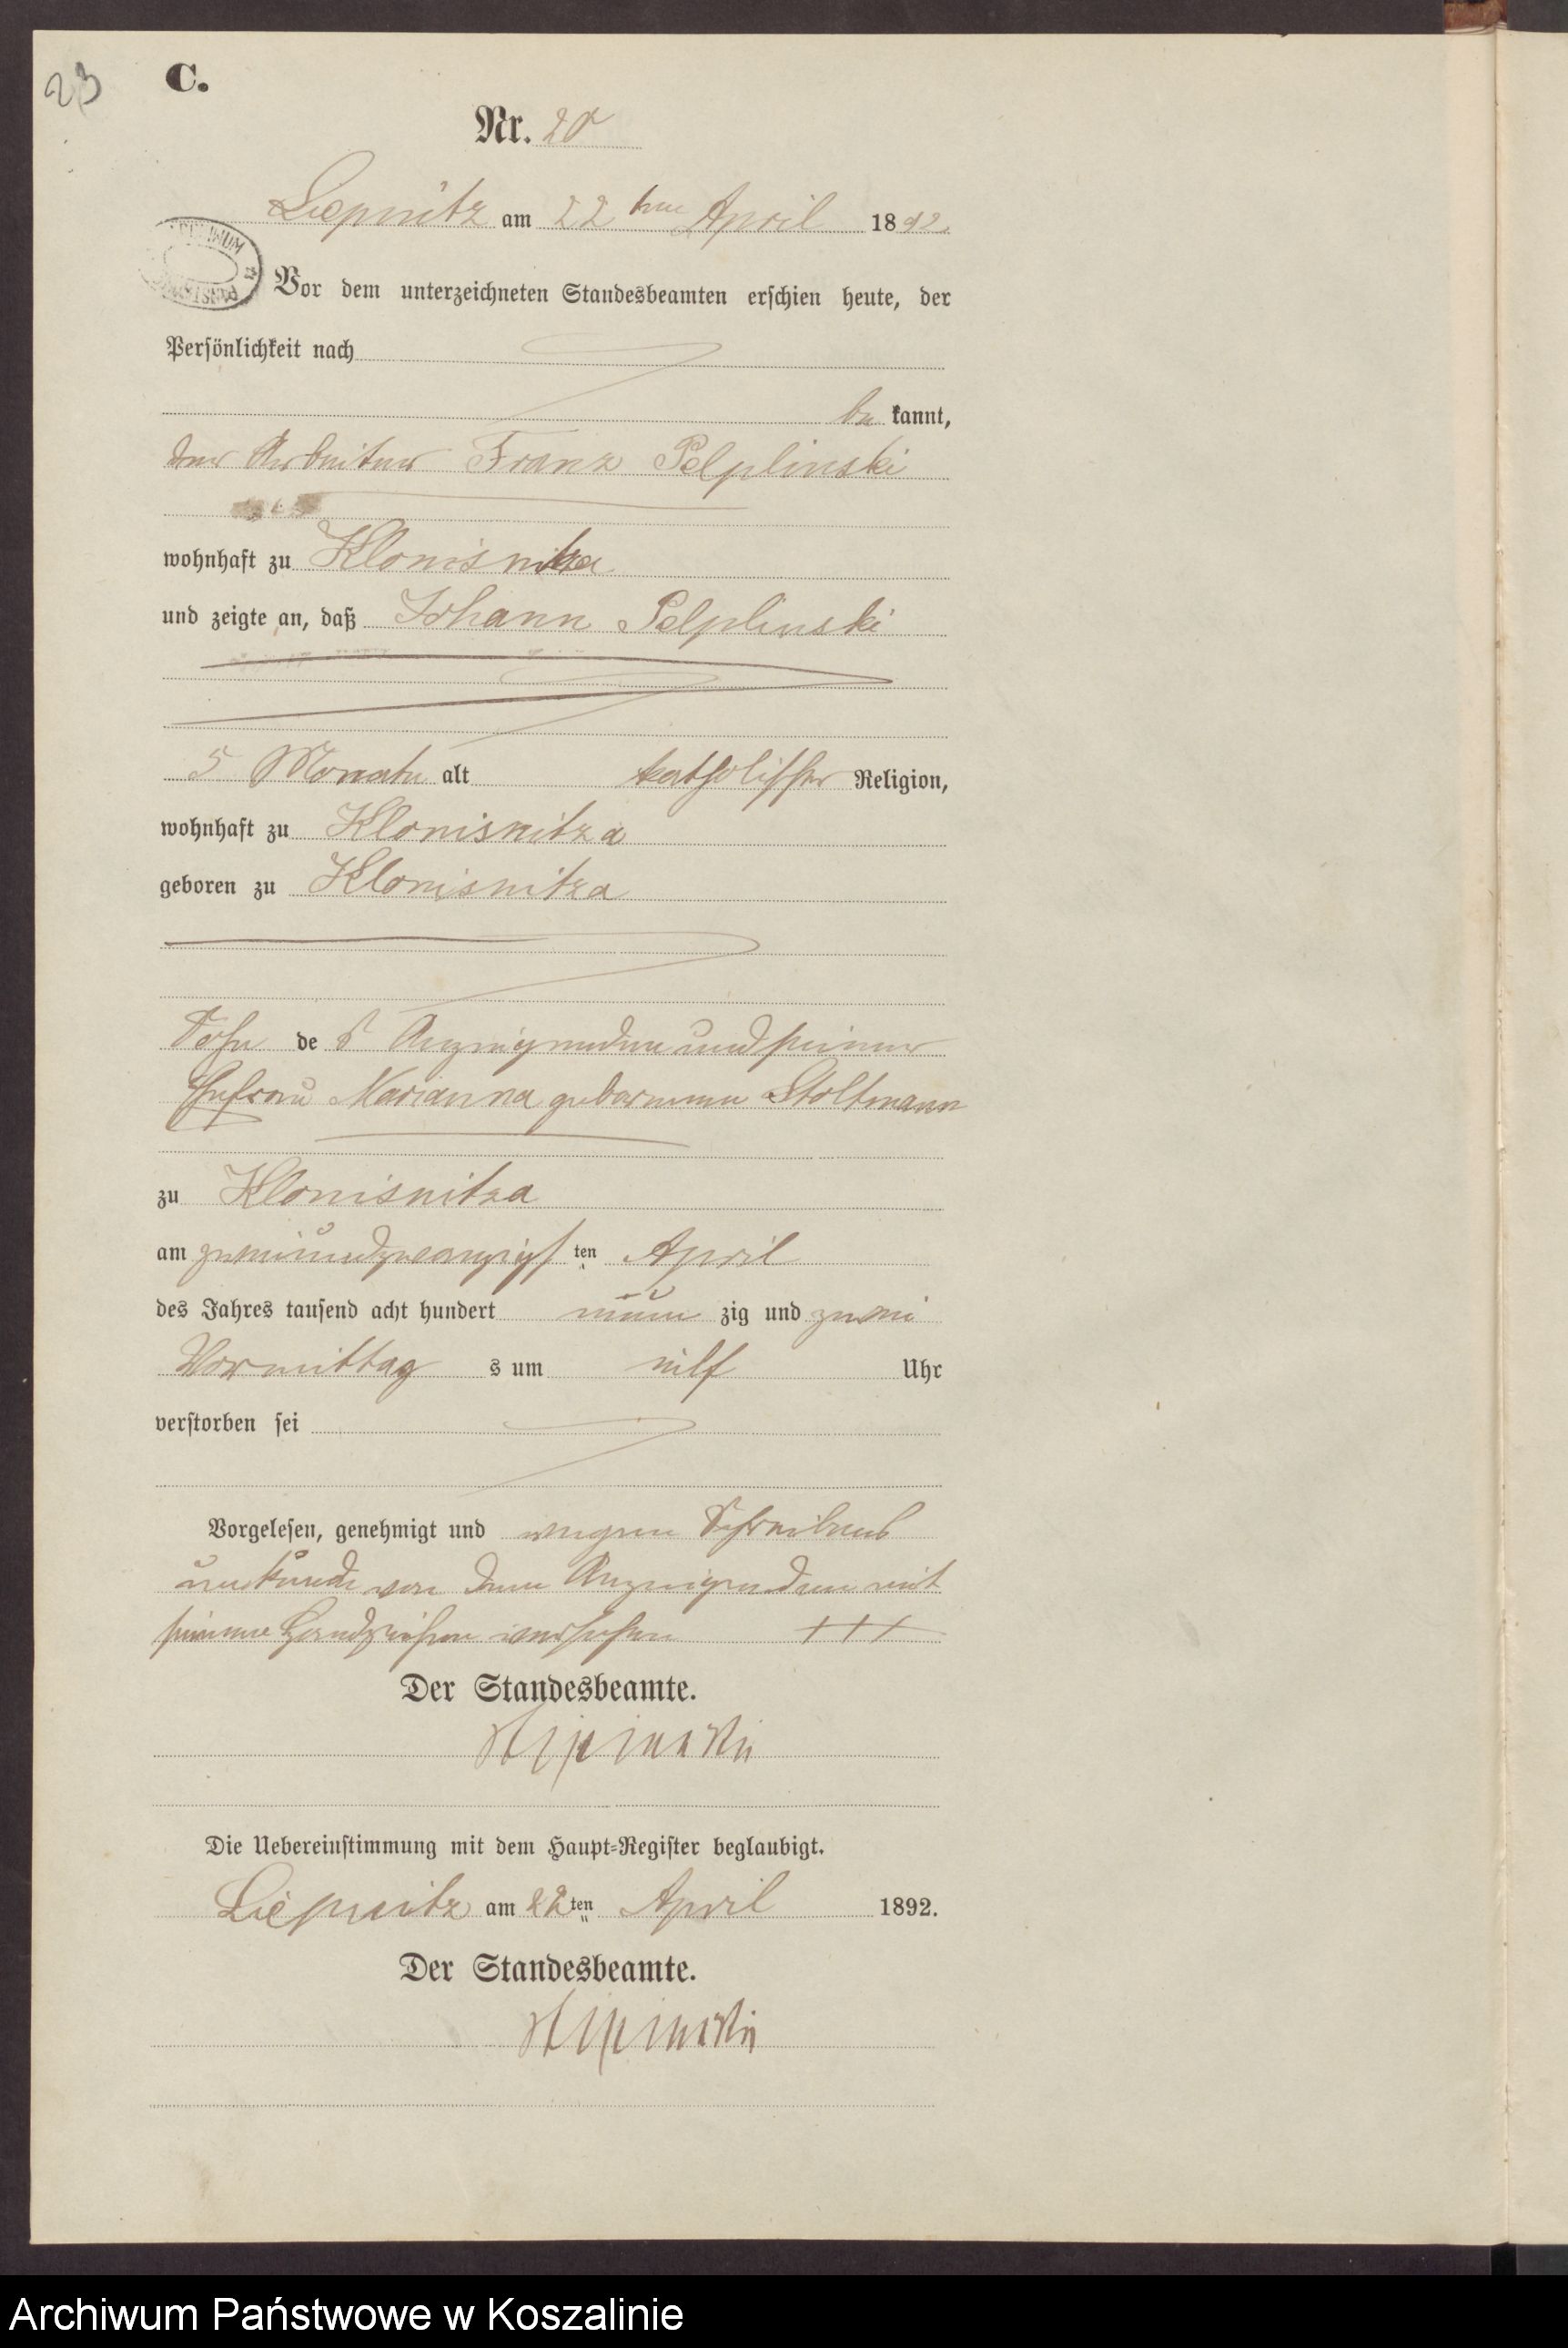 23
C.
Nr. 20
Liepnitz am 22ten April 1892.
Vor dem unterzeichneten Standesbeamten erschien heute, der
Persönlichkeit nach
be kannt,
der Arbeiter Franz Pelplinski
wohnhaft zu Klonisnitza
und zeigte an, daß Johann Pelplinski
5 Monate alt katholischer Religion,
wohnhaft zu Klonisnitza
geboren zu Klonisnitza
Sohn de s Anzeigenden und seiner
Ehefrau Marianna geborenen Stoltmann
zu Klonisnitza
am zweiundzwanzigs ten April
des Jahres tausend acht hundert neun zig und zwei
Vormittag s um elf Uhr
verstorben sei
Vorgelesen, genehmigt und wegen Schreibens
unkunde von dem Anzeigenden mit
seinem Handzeichen versehen +++
Der Standesbeamte.
Die Uebereinstimmung mit dem Haupt-Register beglaubigt.
Liepnitz am 22ten April 1892.
Der Standesbeamte.
Archiwum Państwowe w Koszalinie